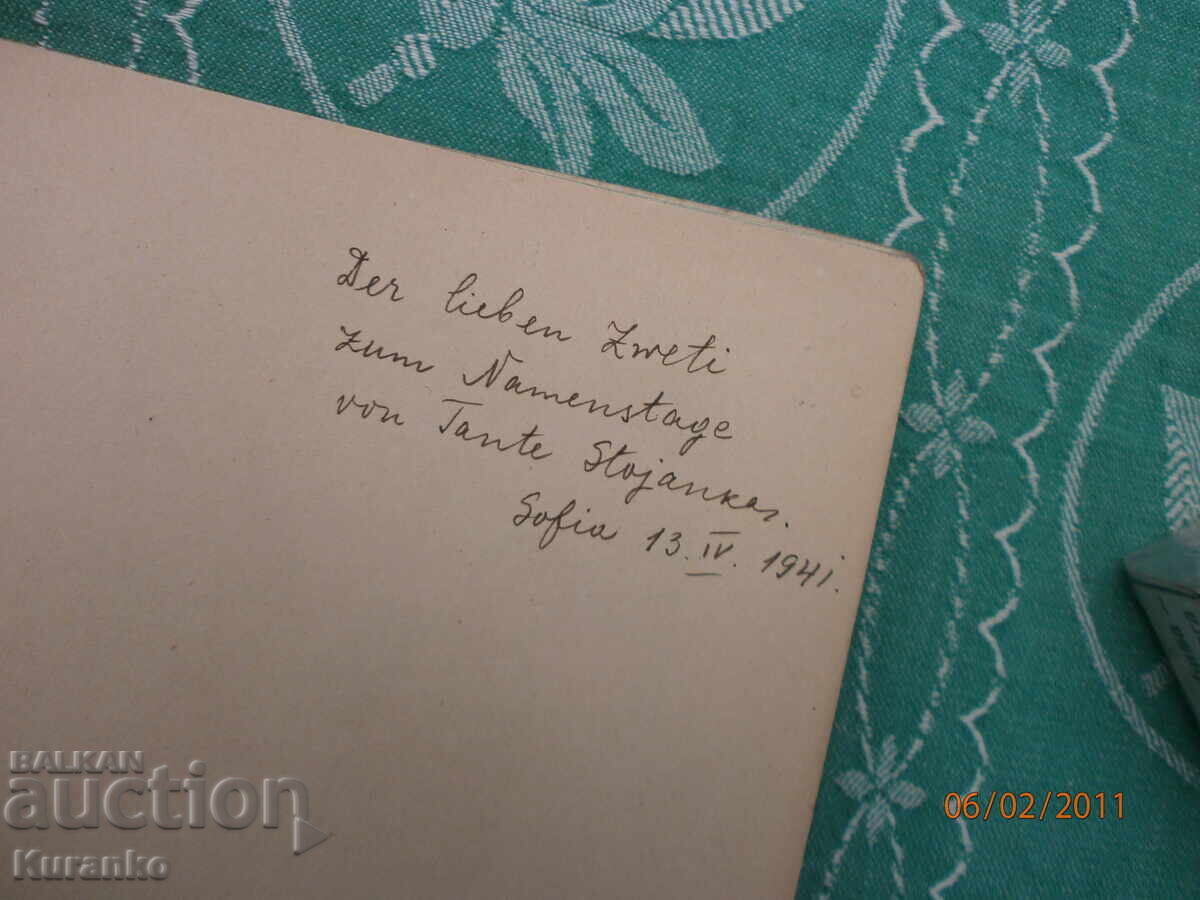 Der lieben Zweti
zum Namenstage
von Tante Stojanka.
Sofia 13.IV.1941.
BALKAN
auction
Kuranko
06/02/2011